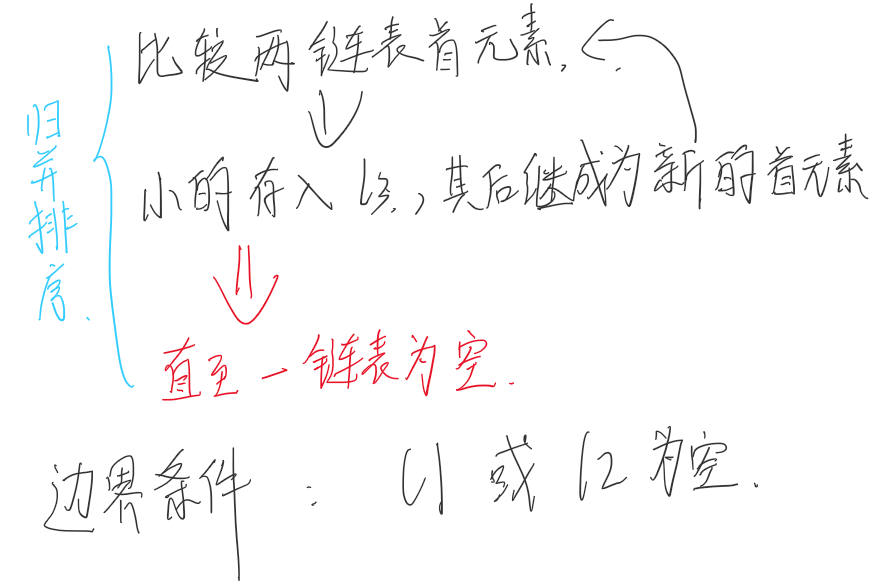 比较两链表首元素.
归并排序.
小的存入l3,其后继成为新的首元素
直至一链表为空.
边界条件: l1 或 l2 为空.